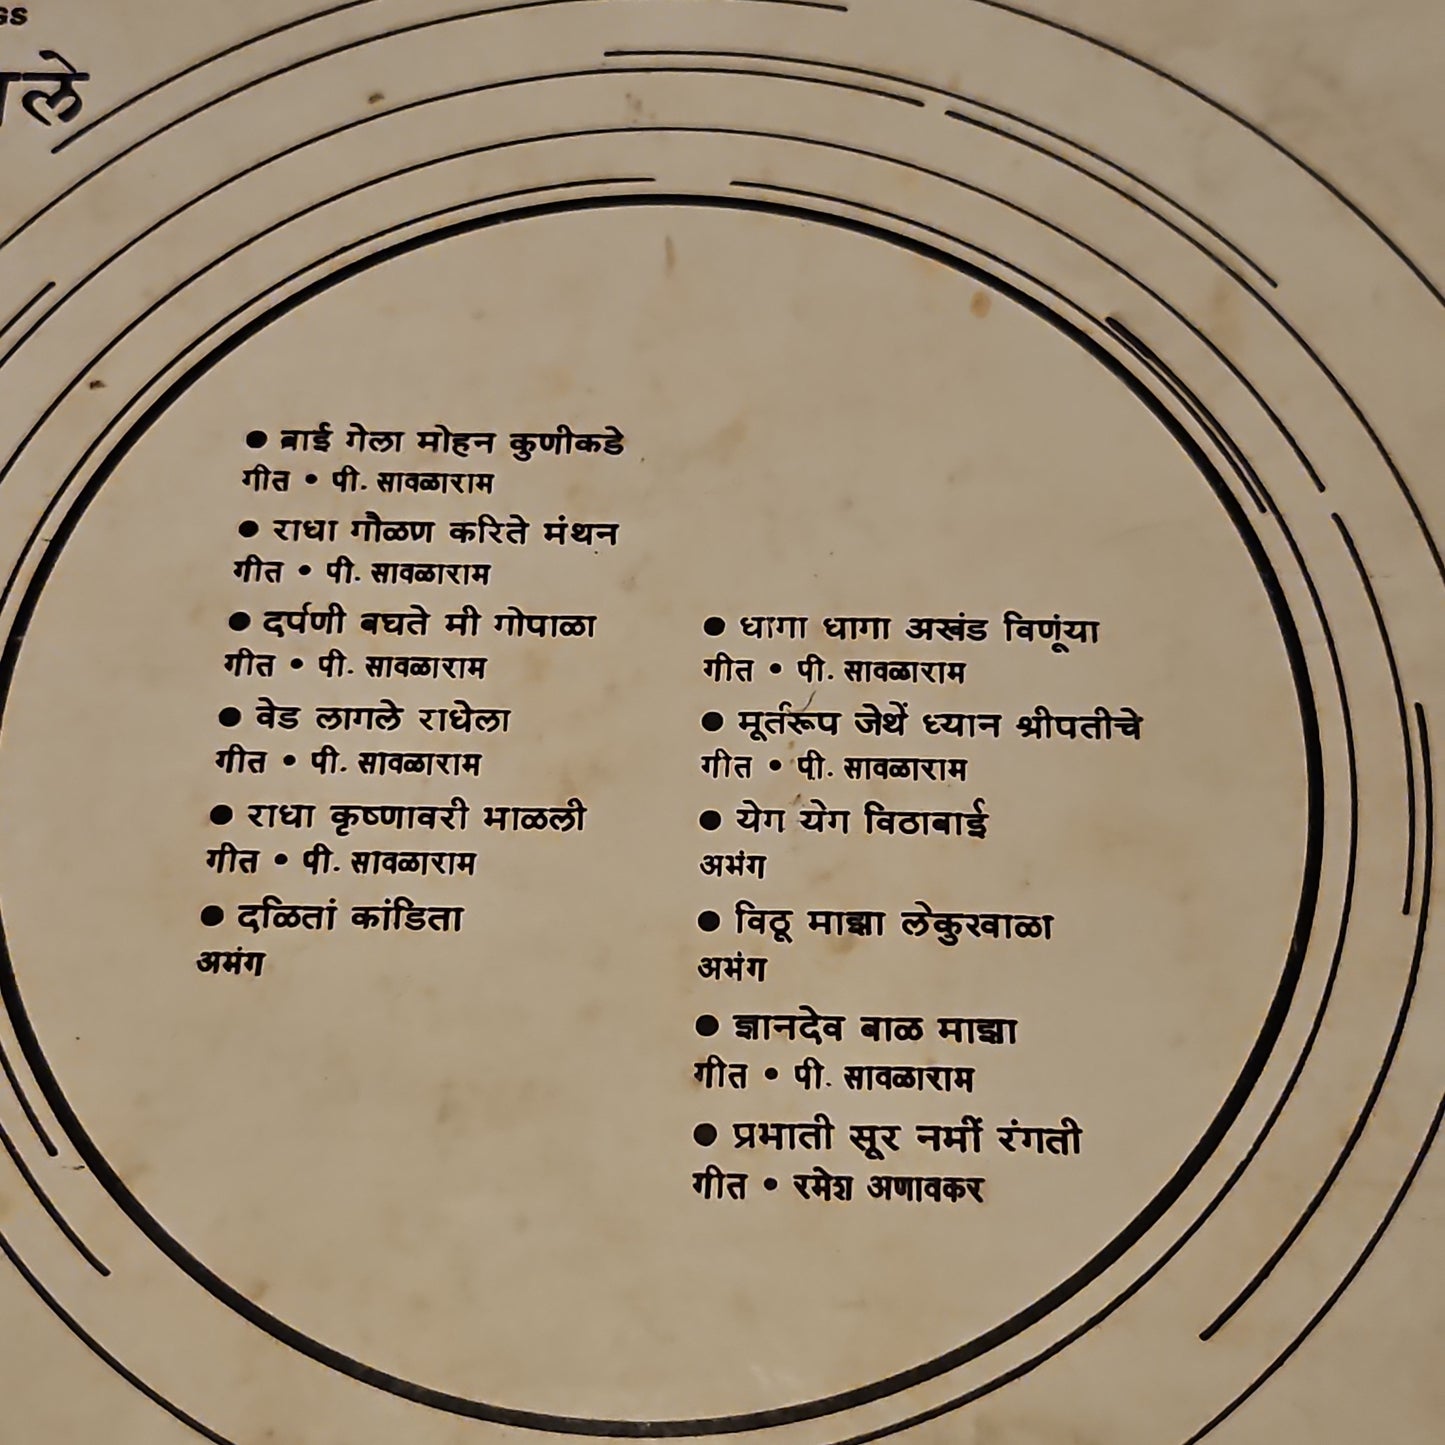 ● बाई गेला मोहन कुणीकडे
गीत • पी. सावळाराम
● राधा गौळण करिते मंथन
गीत • पी. सावळाराम
● दर्पणी बघते मी गोपाळा
गीत • पी. सावळाराम
● वेड लागले राधेला
गीत • पी. सावळाराम
● राधा कृष्णावरी भाळली
गीत • पी. सावळाराम
● दळितां कांडिता
अभंग
● धागा धागा अखंड विणूंया
गीत • पी. सावळाराम
● मूर्तरूप जेथें ध्यान श्रीपतीचे
गीत • पी. सावळाराम
● येग येग विठाबाई
अभंग
● विठू माझा लेकुरवाळा
अभंग
● ज्ञानदेव बाळ माझा
गीत • पी. सावळाराम
● प्रभाती सूर नभीं रंगती
गीत • रमेश अणावकर